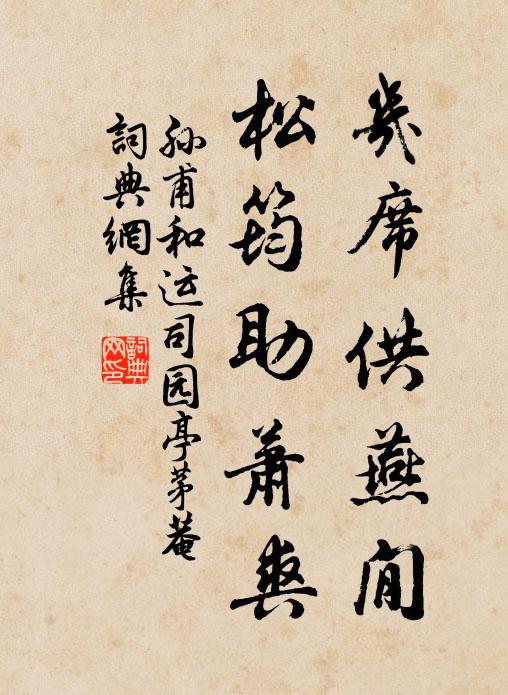 幾席供燕閒
松筠助蕭爽
孙甫和运司园亭茅菴
詞典網集
詞典网印